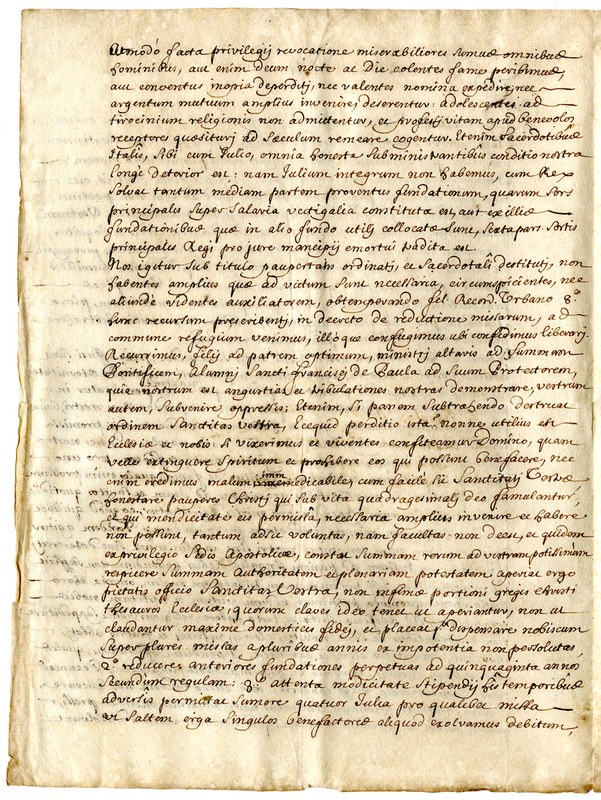 At modo facta privilegij revocatione miserabiliores sumus omnibus
hominibus, aut enim deum nocte ac Die colentes fame peribimus,
aut conventus inopia deperditj, nec valentes nomina expedire, nec
argentum mutuum amplius invenire, deserentur: adolescentes ad
tirocinium religionis non admittentur, et professj vitam apud benevolos
receptores quæsiturj ad sæculum remeare cogentur. Etenim sacerdotibus
Italis, sibi cum Julio, omnia honesta subministrantibus conditio nostra
longe deterior est: nam Julium integrum non habemus, cum Rex
solvat tantum mediam partem proventus fundationum, quarum sors
principalis super salaria vectigalia constituta est, aut ex illis
fundationibus quæ in alio fundo utilj collocatæ sunt, sexta pars sortis
principalis Regi pro jure mancipij emortui tradita est.
Nos igitur sub titulo paupertatis ordinatj, et sacerdotalj destitutj, non
habentes amplius quæ ad victum sunt necessaria, circumspicientes, nec
aliunde videntes auxiliatorem, obtemperando fel. Record. Urbano 8.º
hunc recursum prescribentj, in decreto de reductione missarum, ad
commune refugium venimus, illoque confugimus ubi confidimus liberarj.
Recurrimus, filij ad patrem optimum, ministrj altaris ad summum
Pontificem, alumnj Sanctj franciscj de Paula ad suum Protectorem,
quia nostrum est angustias et tribulationes nostras demonstrare, vestrum
autem, subvenire oppressis; Etenim, si panem subtrahendo destruat
ordinem Sanctitas vestra, Ecequid perditio ista? nonne utilius est
Ecclesiæ et nobis si vixerimus et viventes confiteamur Domino, quam
velle extinguere spiritum et prohibere eos qui possunt benefacere, nec
enim credimus malum imm medicabile, cum facile sit Sanctitatj Vestræ
honestare pauperes Christj qui sub vita quadragesimalj deo famulantur,
et qui mendicitate eis permissa, necessaria amplius invenire et habere
non possunt, tantum adsit voluntas, nam facultas non deest, et quidem
ex privilegio Sedis Apostolicæ, constat summam rerum ad vestram potissimum
respicere summam Authoritatem et plenariam potestatem aperiat ergo
pietatis officio Sanctitas Vestra, non infimæ portioni gregis christi
thesauros Ecclesiæ, quorum claves ideo tenet ut aperiantur, non ut
claudantur maxime domesticis fidej, et placeat 1.º dispensare nobiscum
super plures missas a pluribus annis ex impotentia non persolutas,
2.º reducere anteriores fundationes perpetuas ad quinquaginta annos
secundum regulam: 3.º attenta modicitate stipendij his temporibus
adversis permittat sumere quatuor Julia pro qualibet missa
ut saltem erga singulos benefactores aliquod exolvamus debitum,